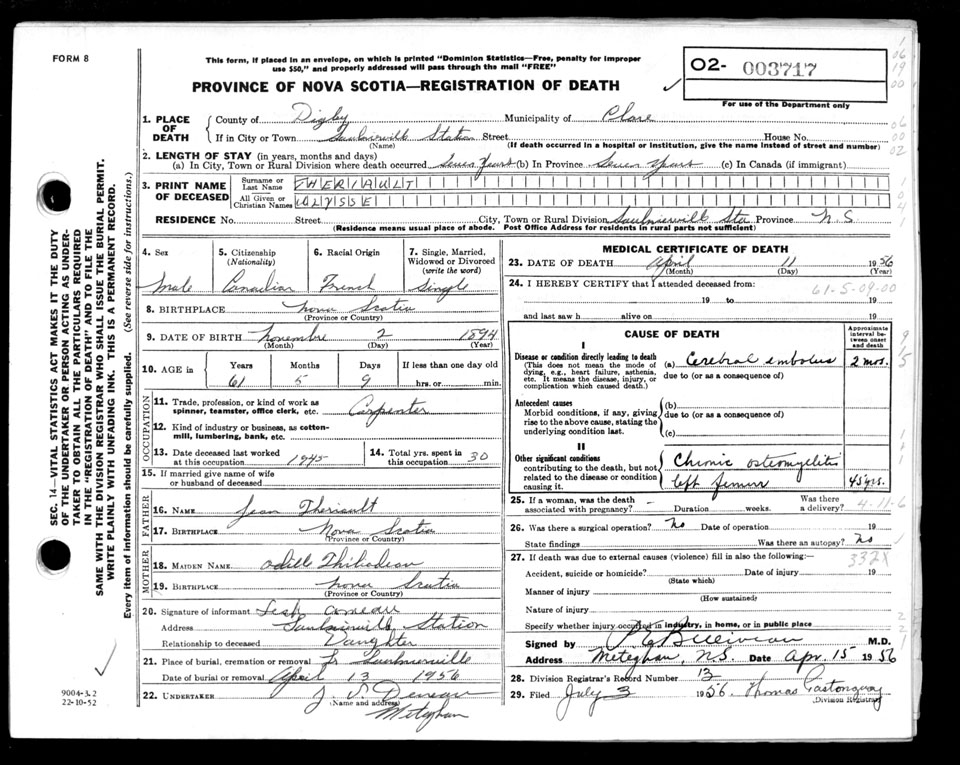 FORM 8
This form, if placed in an envelope, on which is printed "Dominion Statistics—Free, penalty for improper
use $50," and properly addressed will pass through the mail "FREE"
PROVINCE OF NOVA SCOTIA—REGISTRATION OF DEATH
O2- 003717
For use of the Department only
1. PLACE OF DEATH
County of Digby Municipality of Clare
If in City or Town Saulnierville Station Street House No.
(Name) (If death occurred in a hospital or institution, give the name instead of street and number)
2. LENGTH OF STAY (in years, months and days)
(a) In City, Town or Rural Division where death occurred Seven Years (b) In Province Seven Years (c) In Canada (if immigrant)
3. PRINT NAME OF DECEASED
Surname or Last Name THERIAULT
All Given or Christian Names ULYSSE
RESIDENCE No. Street City, Town or Rural Division Saulnierville Sta Province N.S.
(Residence means usual place of abode. Post Office Address for residents in rural parts not sufficient)
4. Sex
Male
5. Citizenship
(Nationality)
Canadian
6. Racial Origin
French
7. Single, Married,
Widowed or Divorced
(write the word)
Single
8. BIRTHPLACE Nova Scotia
(Province or Country)
9. DATE OF BIRTH Novembre 2 1894
(Month) (Day) (Year)
10. AGE in
Years Months Days If less than one day old
61 5 9 hrs. or min.
OCCUPATION
11. Trade, profession, or kind of work as
spinner, teamster, office clerk, etc. Carpenter
12. Kind of industry or business, as cotton-
mill, lumbering, bank, etc.
13. Date deceased last worked
at this occupation 1945
14. Total yrs. spent in
this occupation 30
15. If married give name of wife
or husband of deceased
FATHER
16. NAME Jean Theriault
17. BIRTHPLACE Nova Scotia
(Province or Country)
MOTHER
18. MAIDEN NAME Odille Thibodeau
19. BIRTHPLACE Nova Scotia
(Province or Country)
20. Signature of informant Comeau
Address Saulnierville Station
Relationship to deceased Daughter
21. Place of burial, cremation or removal Saulnierville
Date of burial or removal April 13 1956
22. UNDERTAKER
(Name and address)
Meteghan
MEDICAL CERTIFICATE OF DEATH
23. DATE OF DEATH April 11 1956
(Month) (Day) (Year)
24. I HEREBY CERTIFY that I attended deceased from:
61-5-09-00
19 to 19
and last saw h alive on 19
CAUSE OF DEATH
Approximate interval between onset and death
I
Disease or condition directly leading to death
(This does not mean the mode of
dying, e.g., heart failure, asthenia,
etc. It means the disease, injury, or
complication which caused death.)
(a) Cerebral embolus 2 mos.
due to (or as a consequence of)
Antecedent causes
Morbid conditions, if any, giving
rise to the above cause, stating the
underlying condition last.
(b)
due to (or as a consequence of)
(c)
II
Other significant conditions
contributing to the death, but not
related to the disease or condition
causing it.
Chronic osteomyelitis
left femur 45 yrs.
25. If a woman, was the death
associated with pregnancy? Duration weeks. Was there
a delivery?
4-11-6
26. Was there a surgical operation? No Date of operation 19
State findings Was there an autopsy? No
27. If death was due to external causes (violence) fill in also the following:
332X
Accident, suicide or homicide? Date of injury 19
(State which)
Manner of injury
(How sustained)
Nature of injury
Specify whether injury occurred in industry, in home, or in public place
Signed by M.D.
Address Meteghan, N.S. Date Apr. 15 1956
28. Division Registrar's Record Number 13
29. Filed July 3 1956. Thomas Gastonguay
(Division Registrar)
SEC. 14—VITAL STATISTICS ACT MAKES IT THE DUTY
OF THE UNDERTAKER OR PERSON ACTING AS UNDER-
TAKER TO OBTAIN ALL THE PARTICULARS REQUIRED
IN THE "REGISTRATION OF DEATH" AND TO FILE THE
SAME WITH THE DIVISION REGISTRAR WHO SHALL ISSUE THE BURIAL PERMIT.
WRITE PLAINLY WITH UNFADING INK. THIS IS A PERMANENT RECORD.
Every item of information should be carefully supplied. (See reverse side for instructions.)
9004-3.2
22-10-52